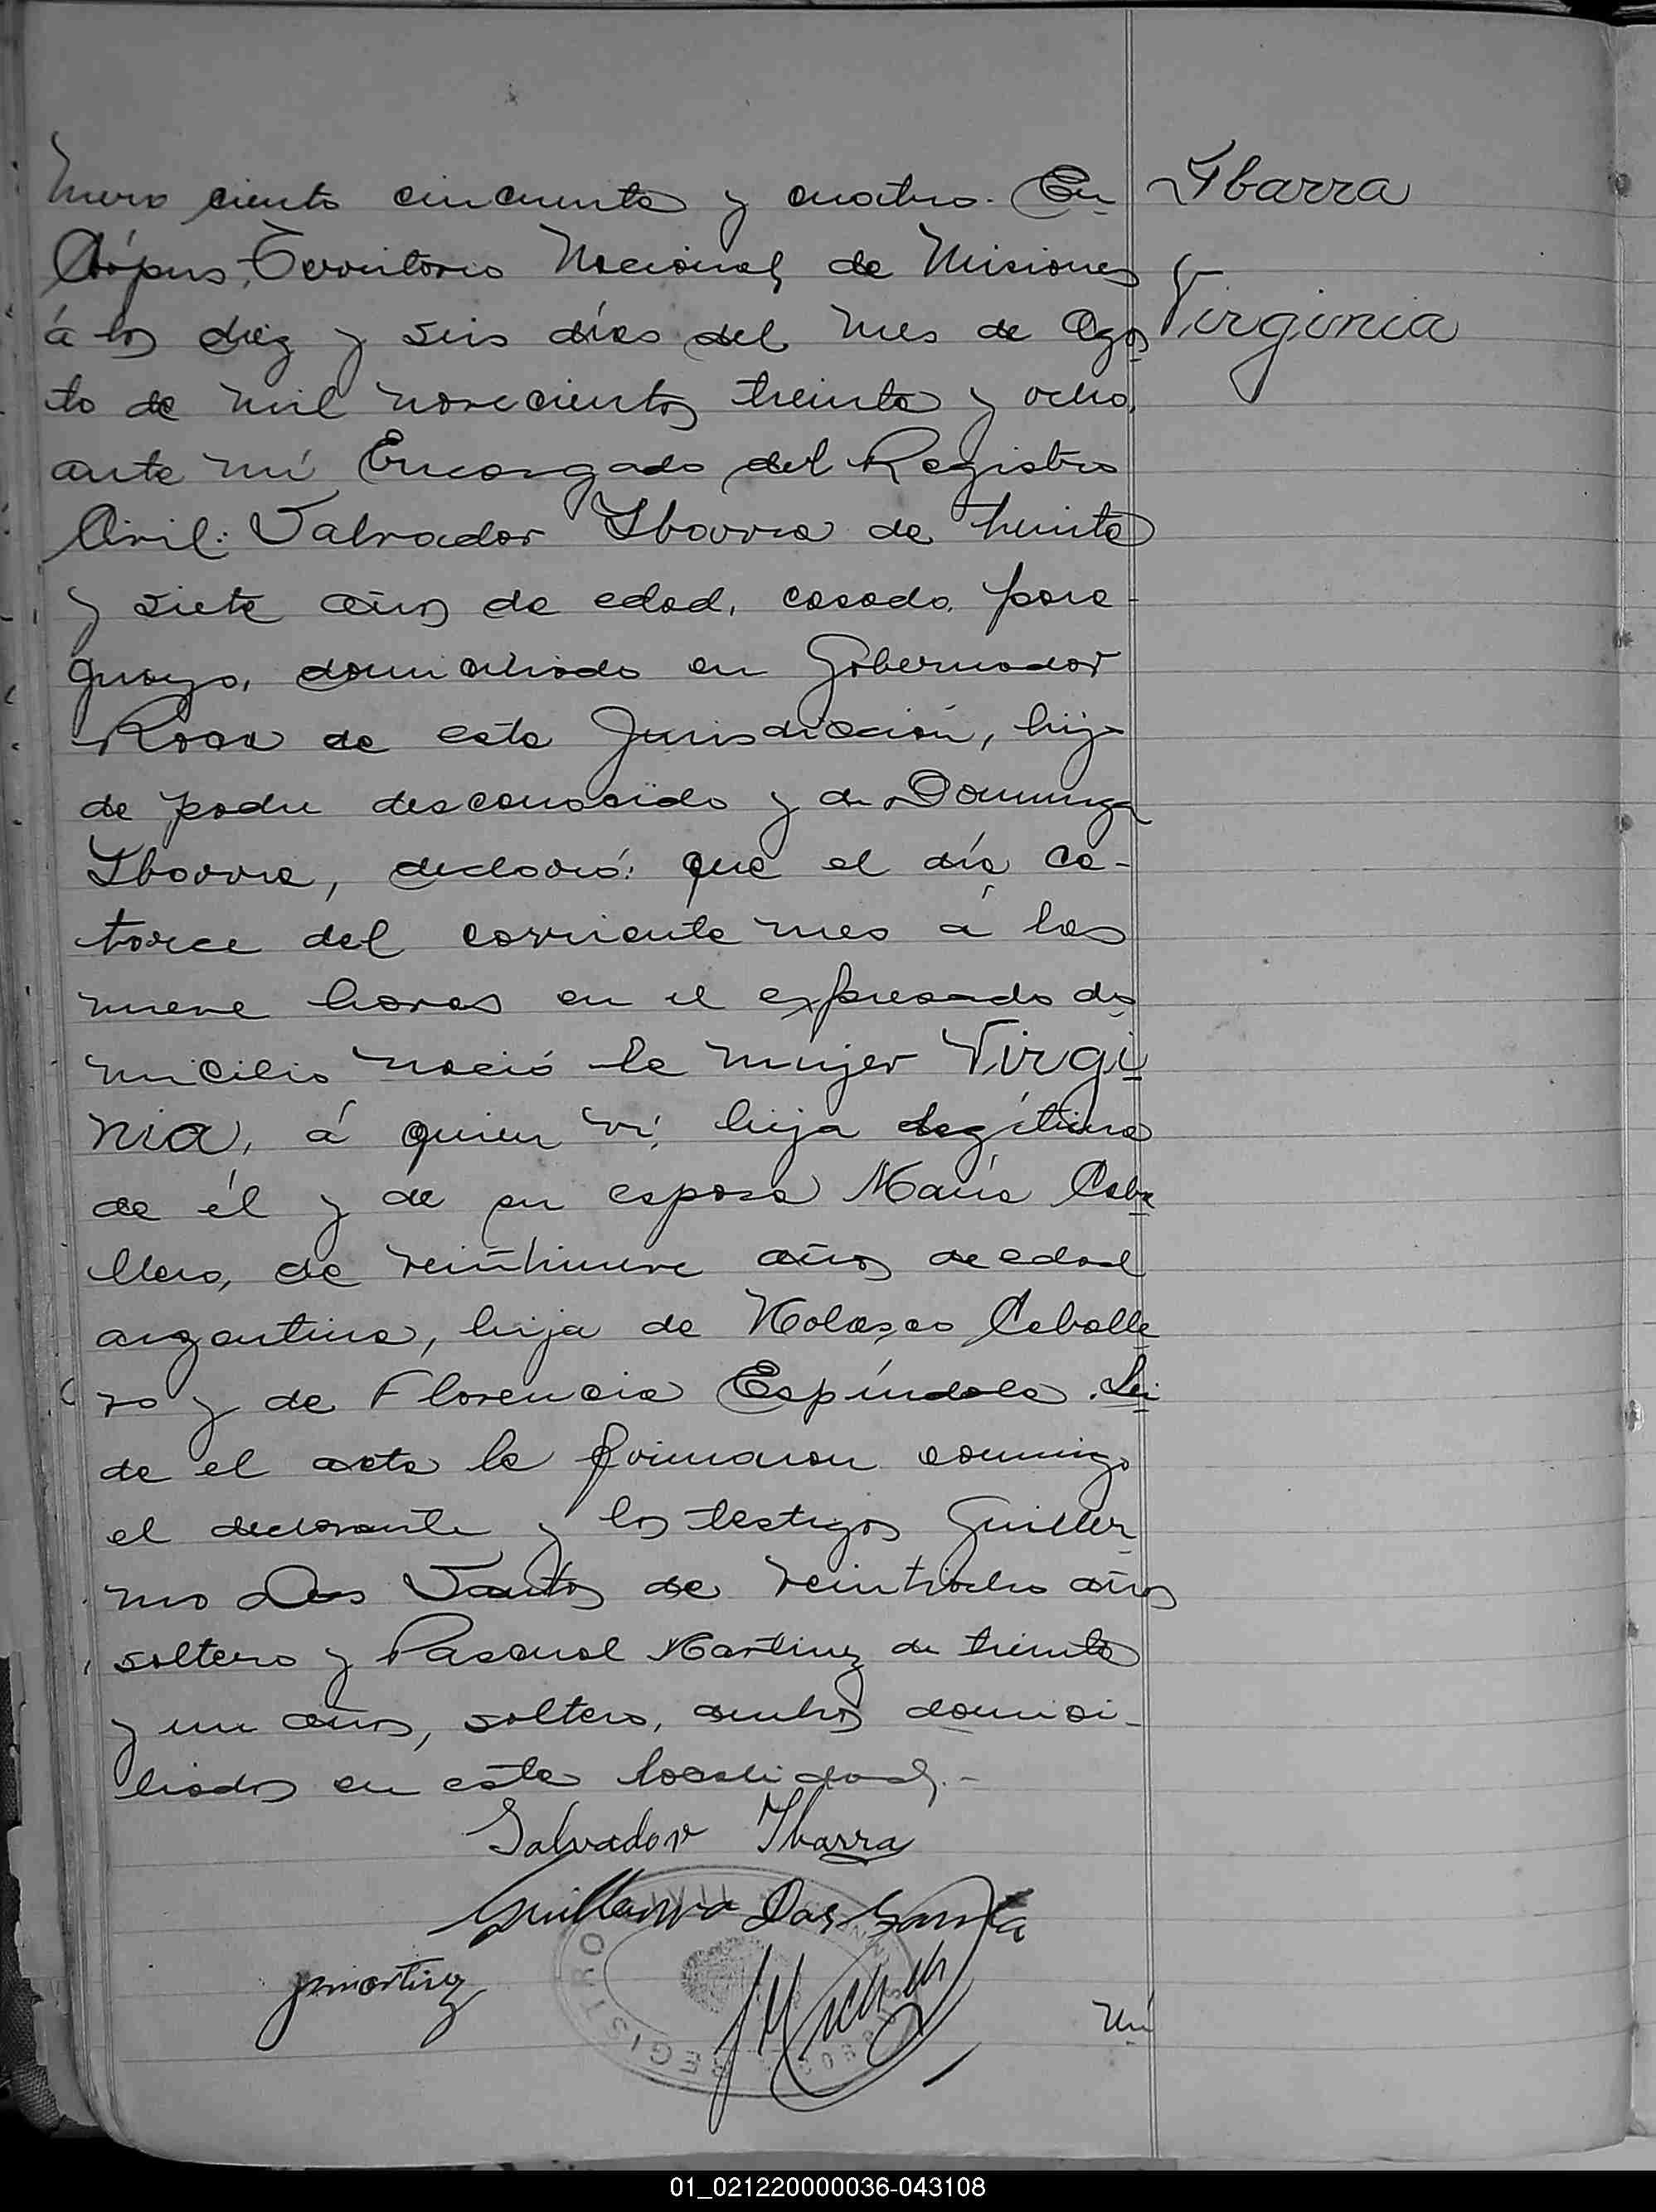 mero ciento cincuenta y cuatro. En
Córpus, Territorio Nacional de Misiones
á los diez y seis días del mes de Agos
to de mil novecientos treinta y ocho,
ante mí Encargado del Registro
Civil: Salvador Ibarra de treinta
y siete años de edad, casado, para-
guayo, domiciliado en Gobernador
Roca de esta Jurisdicción, hijo
de padre desconocido y de Dominga
Ibarra, declaró: que el día ca-
torce del corriente mes á las
nueve horas en el expresado do
micilio nació la mujer Virgi
nia, á quien ví, hija legítima
de él y de su esposa María Caba
llero, de veintinueve años de edad
argentina, hija de Nolasco Caballe
ro y de Florencia Espíndola. Lei
da el acta la firmaron conmigo
el declarante y los testigos Guiller
mo Dos Santos de veintiocho años
soltero y Pascual Martinez de treinta
y un años, soltero, ambos domici-
liados en esta localidad.-
Salvador Ibarra
Guillermo Dos Santo
pmartinez
Nú
REGISTRO
Ibarra
Virginia
01_021220000036-043108